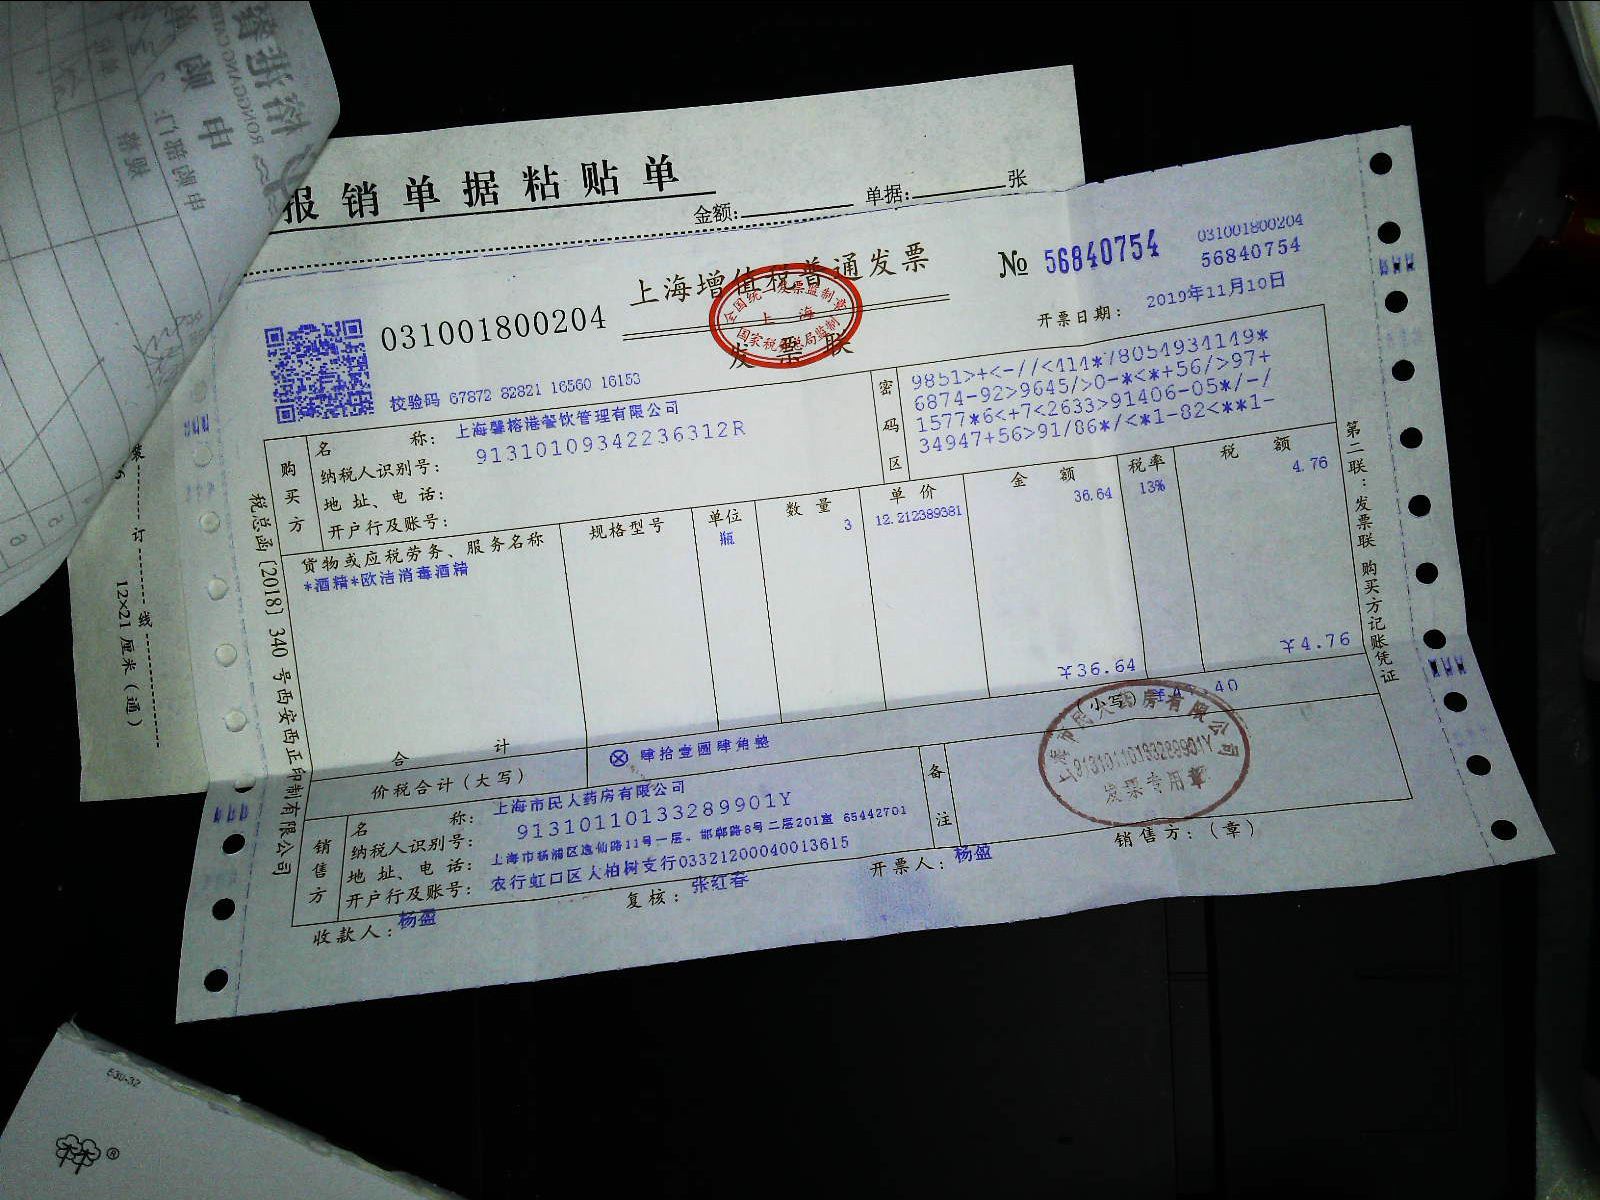 报销单据粘贴单
金额: 单据: 张
上海增值税普通发票
发票联
全国统一发票监制章
上海
国家税务总局监制
031001800204
No 56840754
031001800204
56840754
开票日期: 2019年11月10日
校验码 67872 82821 16560 16153
购买方
名 称: 上海馨榕港餐饮管理有限公司
纳税人识别号: 91310109342236312R
地 址、电 话:
开户行及账号:
密码区
9851>+<-//<414*/8054934149*
6874-92>9645/>0-*<*+56/>97+
1577*6<+7<2633>91406-05*/-/
34947+56>91/86*/<*1-82<**1-
货物或应税劳务、服务名称 规格型号 单位 数量 单价 金额 税率 税额
*酒精*欧洁消毒酒精 瓶 3 12.212389381 36.64 13% 4.76
合 计 ¥36.64 ¥4.76
价税合计(大写) ⊗ 肆拾壹圆肆角整 (小写) 40
销售方
名 称: 上海市民人药房有限公司
纳税人识别号: 91310110133289901Y
地 址、电 话: 上海市杨浦区逸仙路11号一层、邯郸路8号二层201室 65442701
开户行及账号: 农行虹口区大柏树支行03321200040013615
备注
上海市民人药房有限公司
91310110133289901Y
发票专用章
收款人: 杨盈 复核: 张红春 开票人: 杨盈 销售方:(章)
税总函[2018]340号西安西正印制有限公司
第二联:发票联 购买方记账凭证
装订线
12×21厘米(通)
申领单
申领部门:
RONGGANG
530-32